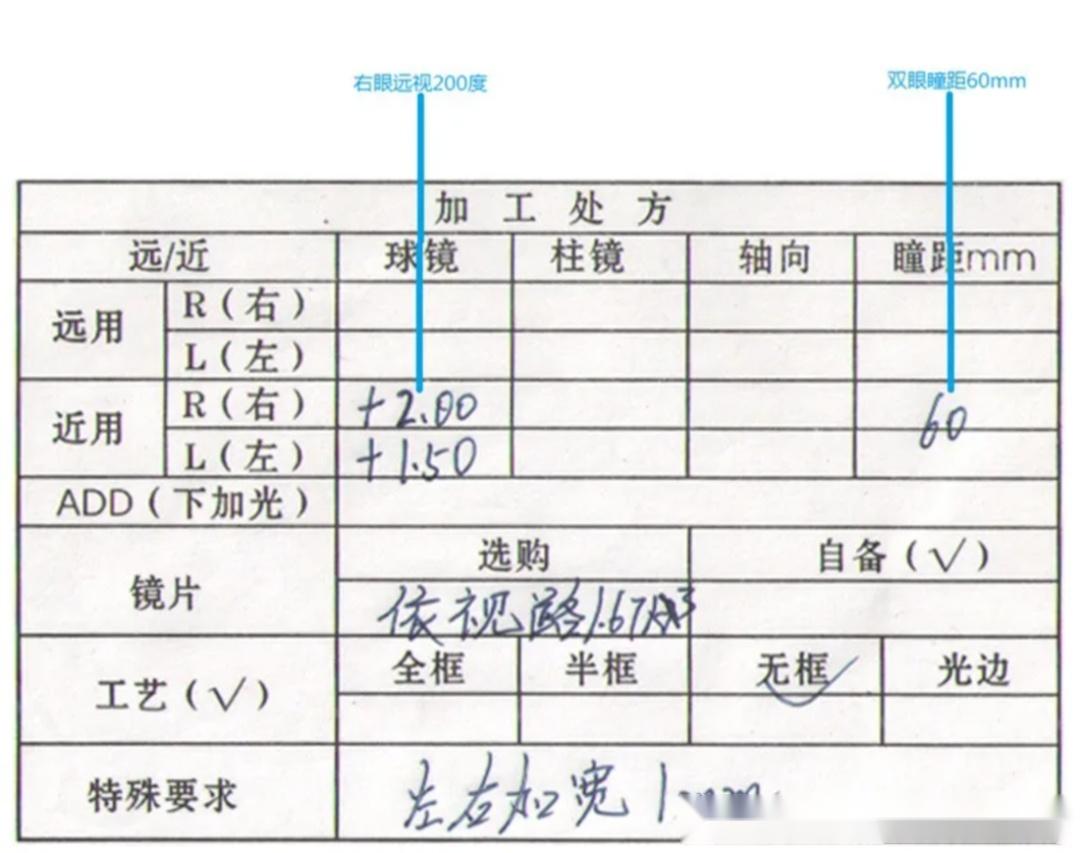 右眼远视200度 双眼瞳距60mm
加工处方
远/近 球镜 柱镜 轴向 瞳距mm
远用 R(右)
L(左)
近用 R(右) +2.00 60
L(左) +1.50
ADD(下加光)
镜片 选购 自备(√)
依视路1.67
工艺(√) 全框 半框 无框 光边
特殊要求 左右加宽